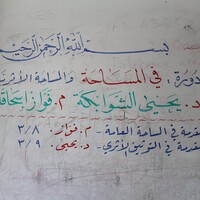 بسم الله الرحمن الرحيم
دورة: في المساحة والمساحة الأثرية
د. يحيى الشوابكة م. فواز إسحاقات
مقدمة في المساحة العامة - م. فواز ٣/٨
مقدمة في التوثيق الأثري - د. يحيى ٣/٩